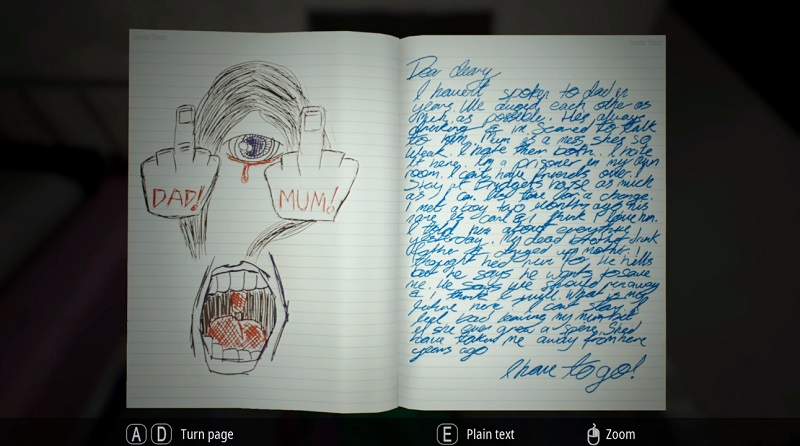 DAD!
MUM!
Dear diary,
I haven't spoken to dad in
years. We avoid each other as
much as possible. He's always
drinking & I'm scared to talk
to him. Mum is a mess. She's so
weak. I hate them both. I hate
it here. I'm a prisoner in my own
room. I can't have friends over. I
stay at Bridget's house as much
as I can.
I met a boy two months ago. His
name is Carl & I think I love him.
I told him about everything
yesterday. My dead brother, drunk
father & mother. I
thought he'd run for the hills
but he says he wants to save
me. He says we should run away
& I think I will. What is my
future here? I can't stay. I
feel bad leaving my mum but
if she ever grew a spine she'd
have taken me away from here
years ago
I have to go!
A D Turn page
E Plain text
Zoom